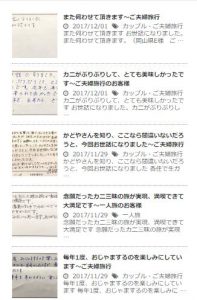 また何わせて頂きます〜ご夫婦旅行
2017/12/01 カップル・ご夫婦旅行
また何わせて頂きます お世話になりました。
また何わせて頂きます。 （岡山県E様 ご …
カニがぷりぷりして、とても美味しかったで
す〜ご夫婦旅行のお客様
2017/12/01 カップル・ご夫婦旅行
カニがぷりぷりして、とても美味しかった
かどやさんを知り、ここなら間違いないだろ
うと、今回お世話になりました〜ご夫婦旅行
2017/11/29 カップル・ご夫婦旅行
かどやさんを知り、ここなら間違いないだろ
うと、今回お世話になりました
念願だったカニ三昧の旅が実現、満喫できて
大満足です〜一人旅のお客様
2017/11/29 一人旅
念願だったカニ三昧の旅が実現、満喫できて
大満足です
毎年1度、おじゃまするのを楽しみにしてい
ます〜ご夫婦旅行
2017/11/29 カップル・ご夫婦旅行
毎年1度、おじゃまするのを楽しみにしてい
ます 毎年1度、おじゃまするのを楽し …